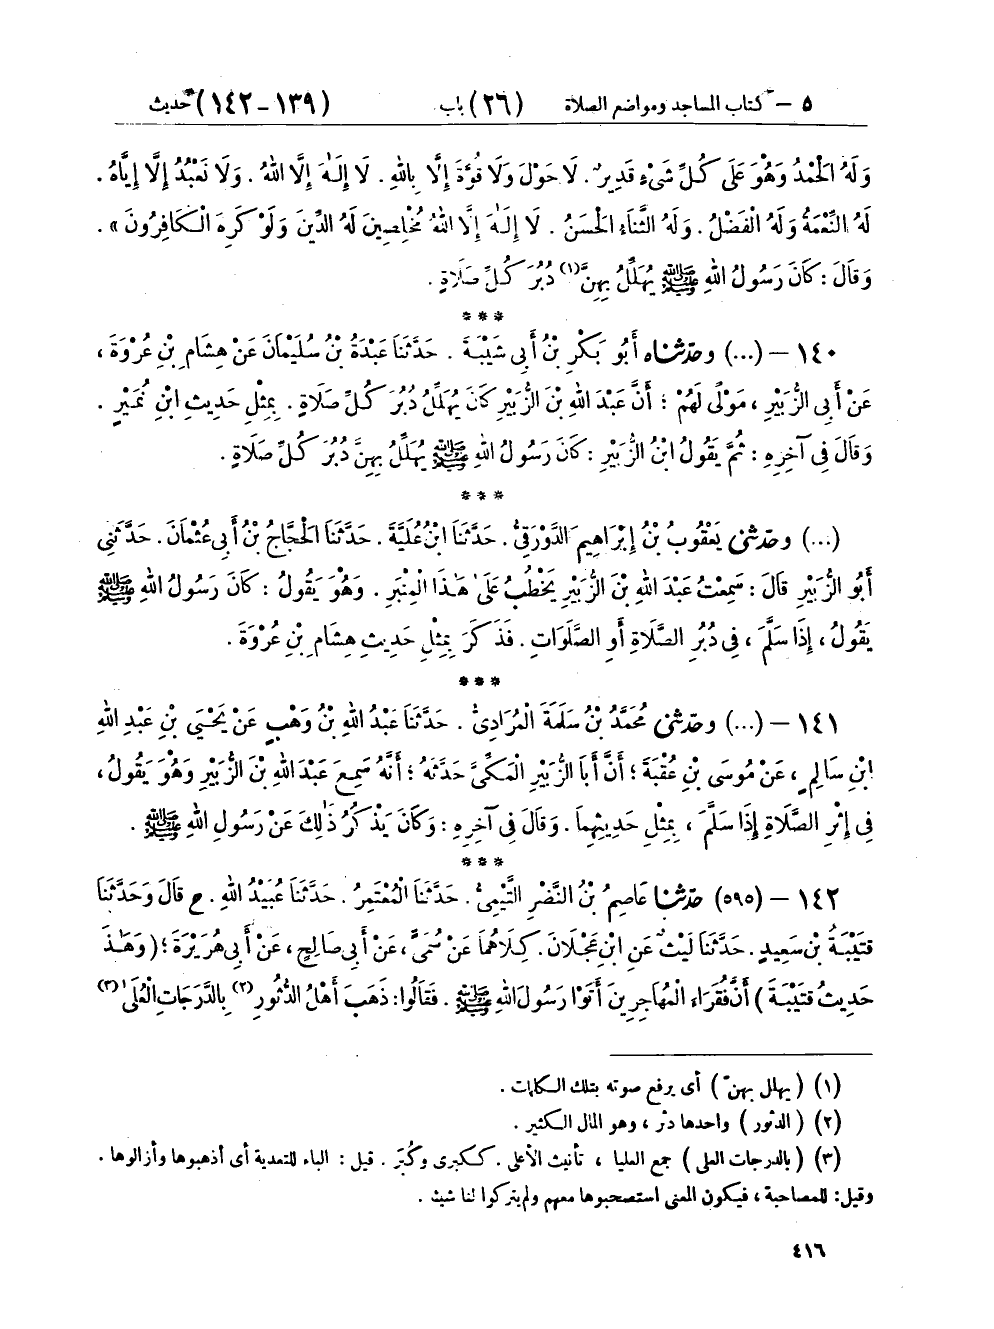 ٥ – كتاب المساجد ومواضع الصلاة (٢٦) باب (١٣٩ – ١٤٢) حديث
وَلَهُ الْحَمْدُ وَهُوَ عَلَى كُلِّ شَيْءٍ قَدِيرٌ. لَا حَوْلَ وَلَا قُوَّةَ إِلَّا بِاللهِ. لَا إِلَـٰهَ إِلَّا اللهُ. وَلَا نَعْبُدُ إِلَّا إِيَّاهُ.
لَهُ النِّعْمَةُ وَلَهُ الْفَضْلُ. وَلَهُ الثَّنَاءُ الْحَسَنُ. لَا إِلَـٰهَ إِلَّا اللهُ مُخْلِصِينَ لَهُ الدِّينَ وَلَوْ كَرِهَ الْكَافِرُونَ».
وَقَالَ: كَانَ رَسُولُ اللهِ ﷺ يُهَلِّلُ بِهِنَّ(١) دُبُرَ كُلِّ صَلَاةٍ.
***
١٤٠ – (...) وحدّثناه أَبُو بَكْرِ بْنُ أَبِي شَيْبَةَ. حَدَّثَنَا عَبْدَةُ بْنُ سُلَيْمَانَ عَنْ هِشَامِ بْنِ عُرْوَةَ،
عَنْ أَبِي الزُّبَيْرِ، مَوْلًى لَهُمْ؛ أَنَّ عَبْدَ اللهِ بْنَ الزُّبَيْرِ كَانَ يُهَلِّلُ دُبُرَ كُلِّ صَلَاةٍ. بِمِثْلِ حَدِيثِ ابْنِ نُمَيْرٍ.
وَقَالَ فِي آخِرِهِ: ثُمَّ يَقُولُ ابْنُ الزُّبَيْرِ: كَانَ رَسُولُ اللهِ ﷺ يُهَلِّلُ بِهِنَّ دُبُرَ كُلِّ صَلَاةٍ.
***
(...) وحدّثني يَعْقُوبُ بْنُ إِبْرَاهِيمَ الدَّوْرَقِيُّ. حَدَّثَنَا ابْنُ عُلَيَّةَ. حَدَّثَنَا الْحَجَّاجُ بْنُ أَبِي عُثْمَانَ. حَدَّثَنِي
أَبُو الزُّبَيْرِ قَالَ: سَمِعْتُ عَبْدَ اللهِ بْنَ الزُّبَيْرِ يَخْطُبُ عَلَىٰ هَـٰذَا الْمِنْبَرِ. وَهُوَ يَقُولُ: كَانَ رَسُولُ اللهِ ﷺ
يَقُولُ، إِذَا سَلَّمَ، فِي دُبُرِ الصَّلَاةِ أَوِ الصَّلَوَاتِ. فَذَكَرَ بِمِثْلِ حَدِيثِ هِشَامِ بْنِ عُرْوَةَ.
***
١٤١ – (...) وحدّثني مُحَمَّدُ بْنُ سَلَمَةَ الْمُرَادِيُّ. حَدَّثَنَا عَبْدُ اللهِ بْنُ وَهْبٍ عَنْ يَحْيَى بْنِ عَبْدِ اللهِ
ابْنِ سَالِمٍ، عَنْ مُوسَى بْنِ عُقْبَةَ؛ أَنَّ أَبَا الزُّبَيْرِ الْمَكِّيَّ حَدَّثَهُ؛ أَنَّهُ سَمِعَ عَبْدَ اللهِ بْنَ الزُّبَيْرِ وَهُوَ يَقُولُ،
فِي إِثْرِ الصَّلَاةِ إِذَا سَلَّمَ، بِمِثْلِ حَدِيثِهِمَا. وَقَالَ فِي آخِرِهِ: وَكَانَ يَذْكُرُ ذَٰلِكَ عَنْ رَسُولِ اللهِ ﷺ.
***
١٤٢ – (٥٩٥) حدّثنا عَاصِمُ بْنُ النَّضْرِ التَّيْمِيُّ. حَدَّثَنَا الْمُعْتَمِرُ. حَدَّثَنَا عُبَيْدُ اللهِ. ح قَالَ وَحَدَّثَنَا
قُتَيْبَةُ بْنُ سَعِيدٍ. حَدَّثَنَا لَيْثٌ عَنِ ابْنِ عَجْلَانَ. كِلَاهُمَا عَنْ سُمَيٍّ، عَنْ أَبِي صَالِحٍ، عَنْ أَبِي هُرَيْرَةَ؛ (وَهَـٰذَا
حَدِيثُ قُتَيْبَةَ) أَنَّ فُقَرَاءَ الْمُهَاجِرِينَ أَتَوْا رَسُولَ اللهِ ﷺ. فَقَالُوا: ذَهَبَ أَهْلُ الدُّثُورِ(٢) بِالدَّرَجَاتِ الْعُلَىٰ(٣)
(١) (يهلل بهنّ) أي يرفع صوته بتلك الكلمات.
(٢) (الدثور) واحدها دثر، وهو المال الكثير.
(٣) (بالدرجات العلى) جمع العليا، تأنيث الأعلى. ككبرى وكُبَر. قيل: الباء للتعدية أي أذهبوها وأزالوها.
وقيل: للمصاحبة، فيكون المعنى استصحبوها معهم ولم يتركوا لنا شيئا.
٤١٦